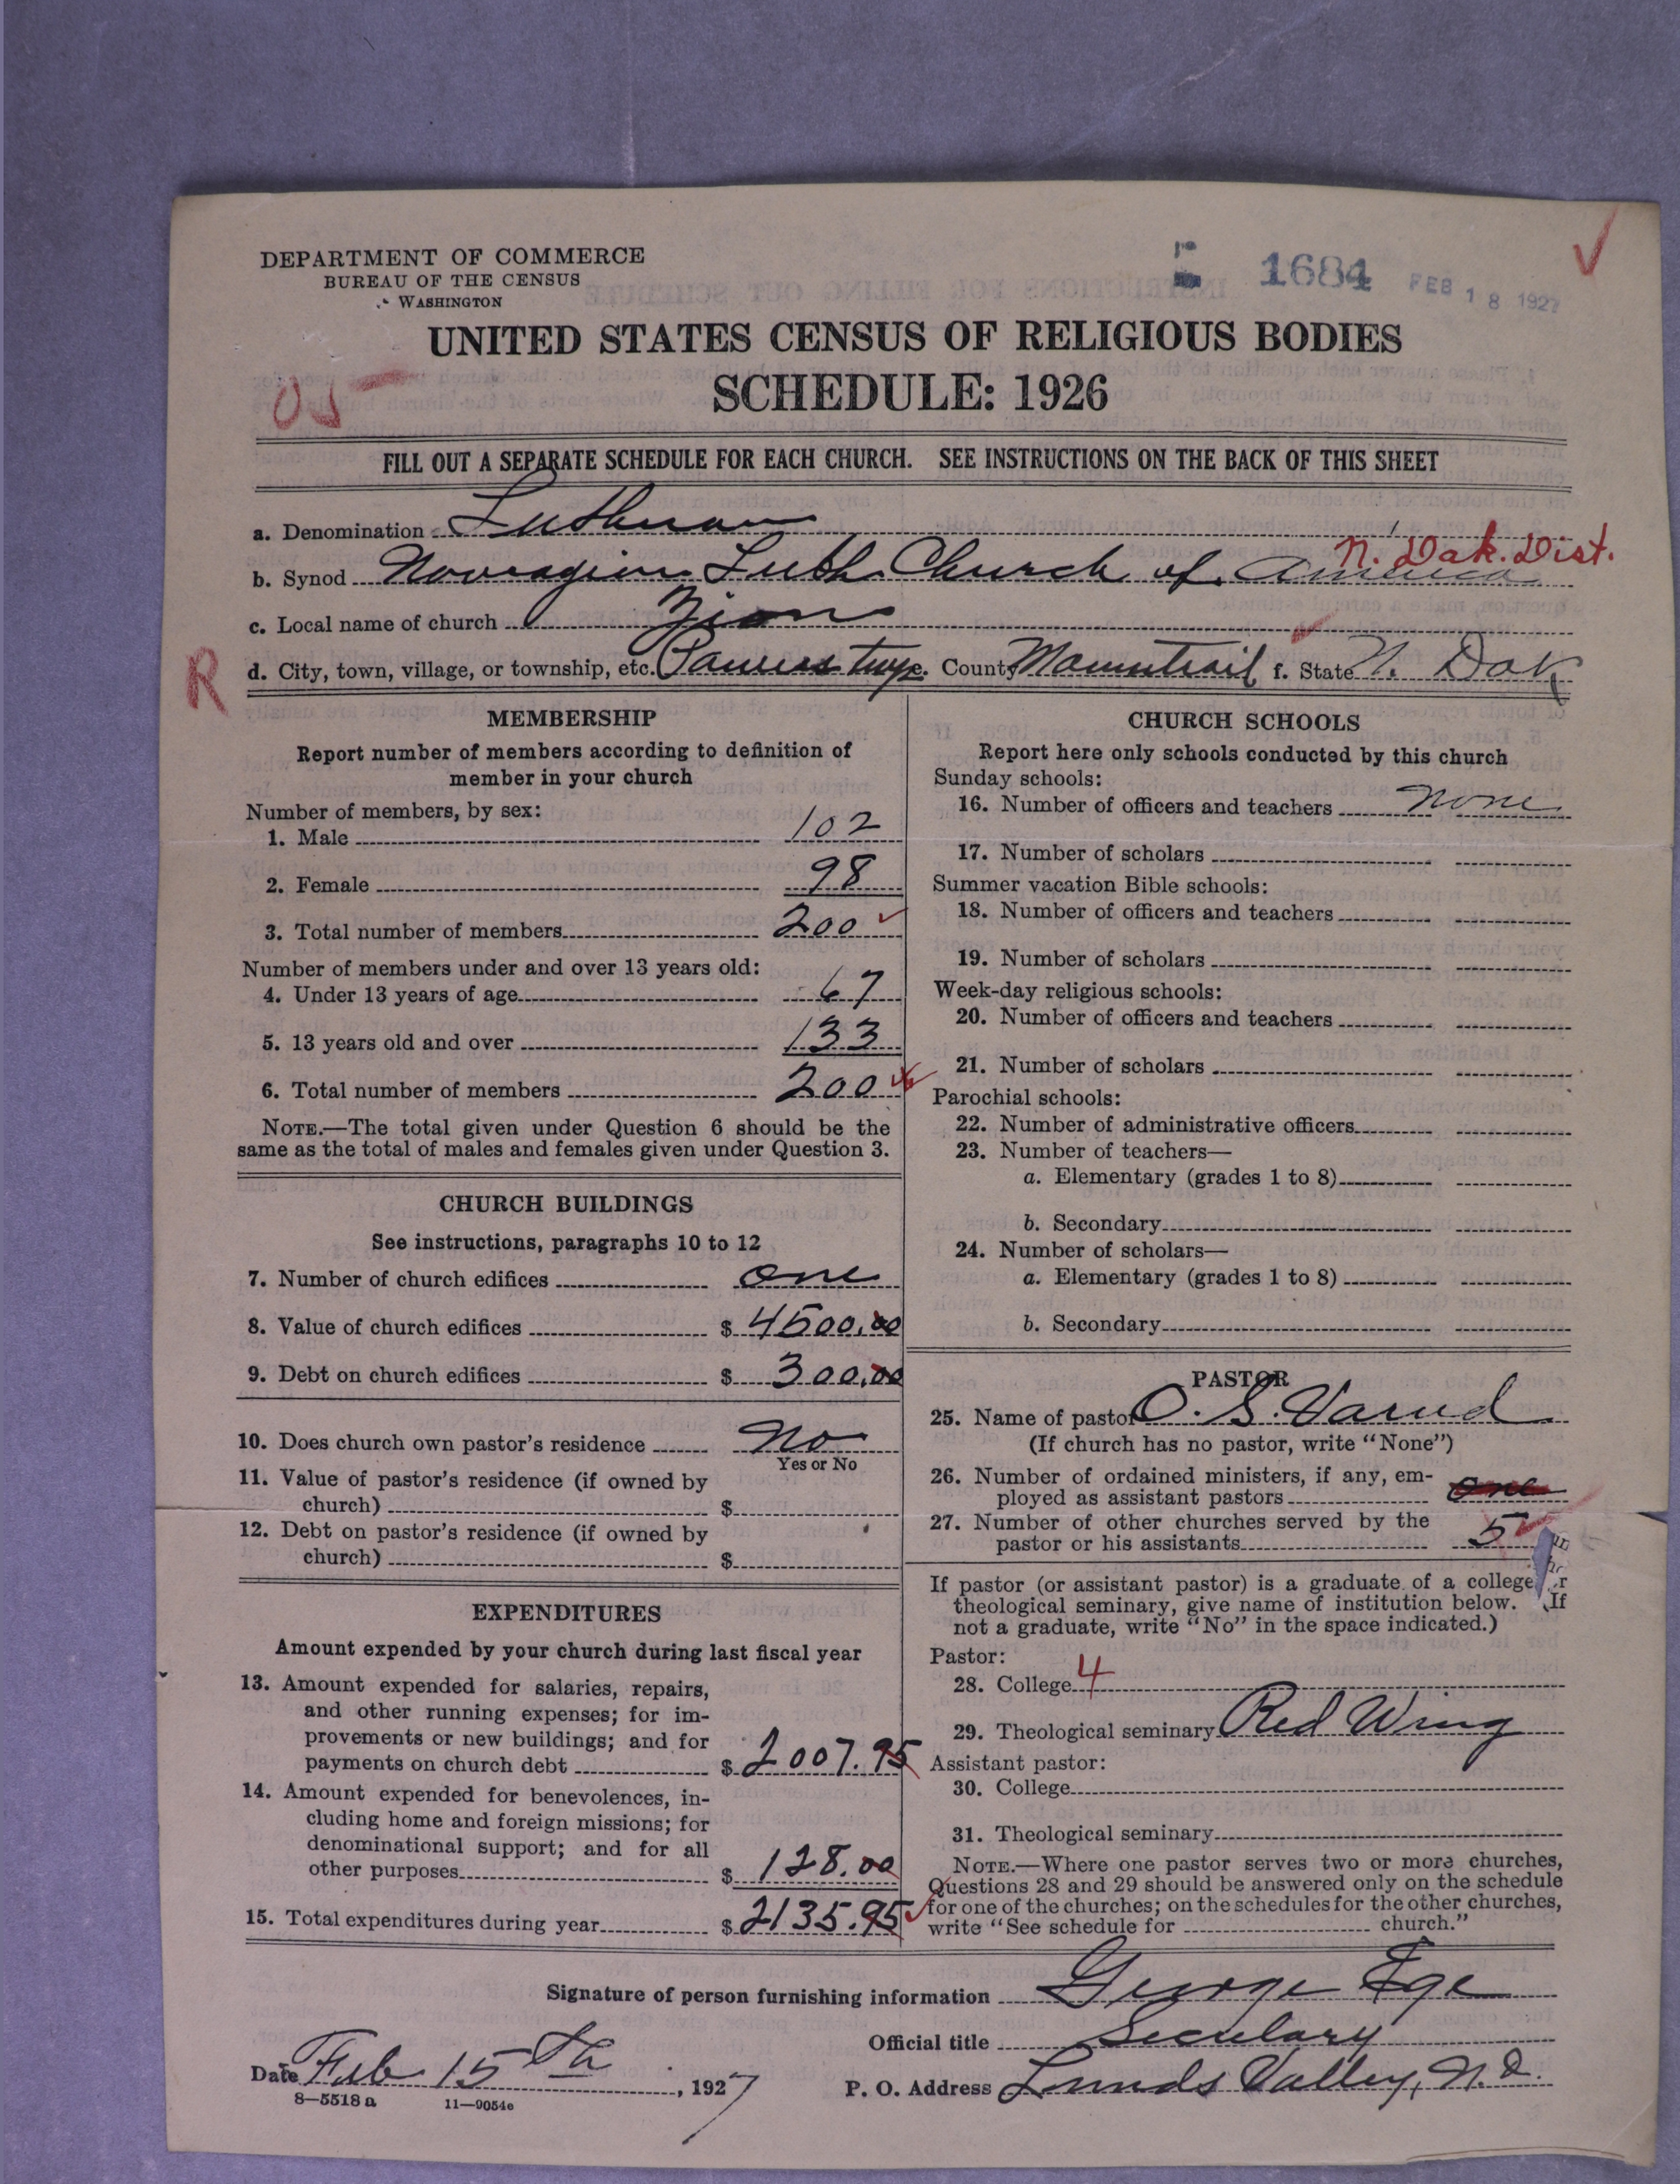 DEPARTMENT OF COMMERCE
BUREAU OF THE CENSUS
WASHINGTON
1684 FEB 18 1927
UNITED STATES CENSUS OF RELIGIOUS BODIES
SCHEDULE: 1926
FILL OUT A SEPARATE SCHEDULE FOR EACH CHURCH. SEE INSTRUCTIONS ON THE BACK OF THIS SHEET
a. Denomination Lutheran
N. Dak. Dist.
b. Synod Norwegian Luth. Church of America
c. Local name of church Zion
R
d. City, town, village, or township, etc. twp e. County Mountrail f. State N. Dak
MEMBERSHIP
Report number of members according to definition of
member in your church
Number of members, by sex:
1. Male 102
2. Female 98
3. Total number of members 200
Number of members under and over 13 years old:
4. Under 13 years of age 67
5. 13 years old and over 133
6. Total number of members 200
NOTE.—The total given under Question 6 should be the
same as the total of males and females given under Question 3.
CHURCH BUILDINGS
See instructions, paragraphs 10 to 12
7. Number of church edifices one
8. Value of church edifices $ 4500.00
9. Debt on church edifices $ 300.00
10. Does church own pastor's residence No
Yes or No
11. Value of pastor's residence (if owned by
church) $
12. Debt on pastor's residence (if owned by
church) $
EXPENDITURES
Amount expended by your church during last fiscal year
13. Amount expended for salaries, repairs,
and other running expenses; for im-
provements or new buildings; and for
payments on church debt $ 2007.95
14. Amount expended for benevolences, in-
cluding home and foreign missions; for
denominational support; and for all
other purposes $ 128.00
15. Total expenditures during year $ 2135.95
CHURCH SCHOOLS
Report here only schools conducted by this church
Sunday schools:
16. Number of officers and teachers none
17. Number of scholars
Summer vacation Bible schools:
18. Number of officers and teachers
19. Number of scholars
Week-day religious schools:
20. Number of officers and teachers
21. Number of scholars
Parochial schools:
22. Number of administrative officers
23. Number of teachers—
a. Elementary (grades 1 to 8)
b. Secondary
24. Number of scholars—
a. Elementary (grades 1 to 8)
b. Secondary
PASTOR
25. Name of pastor O. S. Varud
(If church has no pastor, write "None")
26. Number of ordained ministers, if any, em-
ployed as assistant pastors one
27. Number of other churches served by the
pastor or his assistants 5
If pastor (or assistant pastor) is a graduate of a college r
theological seminary, give name of institution below. (If
not a graduate, write "No" in the space indicated.)
Pastor:
28. College 4
29. Theological seminary Red Wing
Assistant pastor:
30. College
31. Theological seminary
NOTE.—Where one pastor serves two or more churches,
Questions 28 and 29 should be answered only on the schedule
for one of the churches; on the schedules for the other churches,
write "See schedule for church."
Signature of person furnishing information George Ege
Official title Secretary
Date Feb 15th, 1927
P. O. Address Lunds Valley, N.D.
8—5518a 11—9054e